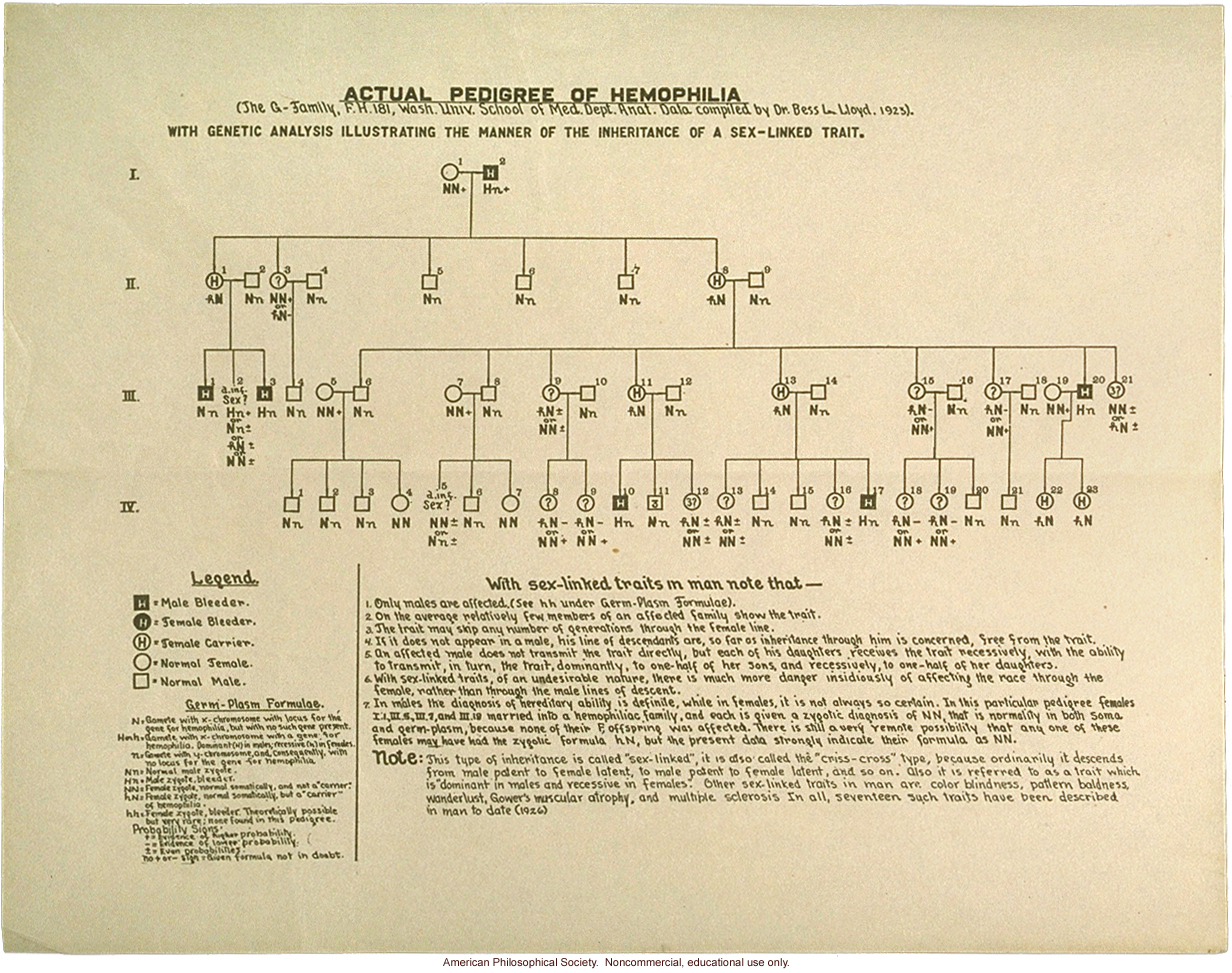 ACTUAL PEDIGREE OF HEMOPHILIA
(The G-Family, F.H.181, Wash. Univ. School of Med. Dept. Anat. Data compiled by Dr. Bess L. Lloyd. 1923).
WITH GENETIC ANALYSIS ILLUSTRATING THE MANNER OF THE INHERITANCE OF A SEX-LINKED TRAIT.
I.
1 2
H
NN+ Hn+
II.
1 2 3 4 5 6 7 8 9
H ? H
hN Nn NN+ Nn Nn Nn Nn hN Nn
or
hN-
III.
1 2 3 4 5 6 7 8 9 10 11 12 13 14 15 16 17 18 19 20 21
H d.inf. H ? H H ? ? H 3?
Sex?
Nn Hn+ Hn Nn NN+ Nn NN+ Nn hN± Nn hN Nn hN Nn hN- Nn hN- Nn NN+ Hn NN±
or or or or or
Nn± NN± NN+ NN+ hN±
or
hN±
or
NN±
IV.
1 2 3 4 5 6 7 8 9 10 11 12 13 14 15 16 17 18 19 20 21 22 23
d.inf. ? ? H 3 3? ? ? H ? ? H H
Sex?
Nn Nn Nn NN NN± Nn NN hN- hN- Hn Nn hN± hN± Nn Nn hN± Hn hN- hN- Nn Nn hN hN
or or or or or or or or
Nn± NN+ NN+ NN± NN± NN± NN+ NN+
Legend.
H = Male Bleeder.
H = Female Bleeder.
H = Female Carrier.
= Normal Female.
= Normal Male.
Germ-Plasm Formulae.
N = Gamete with x-chromosome with locus for the
gene for hemophilia, but with no such gene present.
H or h = Gamete with x-chromosome with a gene for
hemophilia. Dominant (H) in males, recessive (h) in females.
n = Gamete with y-chromosome, and, consequently, with
no locus for the gene for hemophilia
Nn = Normal male zygote.
Hn = Male zygote, bleeder.
NN = Female zygote, normal somatically, and not a "carrier."
hN = Female zygote, normal somatically, but a "carrier"
of hemophilia.
hh = Female zygote, bleeder. Theoretically possible
but very rare; none found in this pedigree.
Probability Signs:
+ = Evidence of higher probability.
- = Evidence of lower probability.
± = Even probabilities.
no + or - sign = Given formula not in doubt.
With sex-linked traits in man note that —
1. Only males are affected. (See hh under Germ-Plasm Formulae).
2. On the average relatively few members of an affected family show the trait.
3. The trait may skip any number of generations through the female line.
4. If it does not appear in a male, his line of descendants are, so far as inheritance through him is concerned, free from the trait.
5. An affected male does not transmit the trait directly, but each of his daughters receives the trait recessively, with the ability
to transmit, in turn, the trait, dominantly, to one-half of her sons, and recessively, to one-half of her daughters.
6. With sex-linked traits, of an undesirable nature, there is much more danger insidiously of affecting the race through the
female, rather than through the male lines of descent.
7. In males the diagnosis of hereditary ability is definite, while in females, it is not always so certain. In this particular pedigree females
I.1, III.5, III.7, and III.19 married into a hemophiliac family, and each is given a zygotic diagnosis of NN, that is normality in both soma
and germ-plasm, because none of their F1 offspring was affected. There is still a very remote possibility that any one of these
females may have had the zygotic formula hN, but the present data strongly indicate their formula as NN.
Note: This type of inheritance is called "sex-linked", it is also called the "criss-cross" type, because ordinarily it descends
from male patent to female latent, to male patent to female latent, and so on. Also it is referred to as a trait which
is "dominant in males and recessive in females." Other sex-linked traits in man are color blindness, pattern baldness,
wanderlust, Gower's muscular atrophy, and multiple sclerosis In all, seventeen such traits have been described
in man to date (1926)
American Philosophical Society. Noncommercial, educational use only.